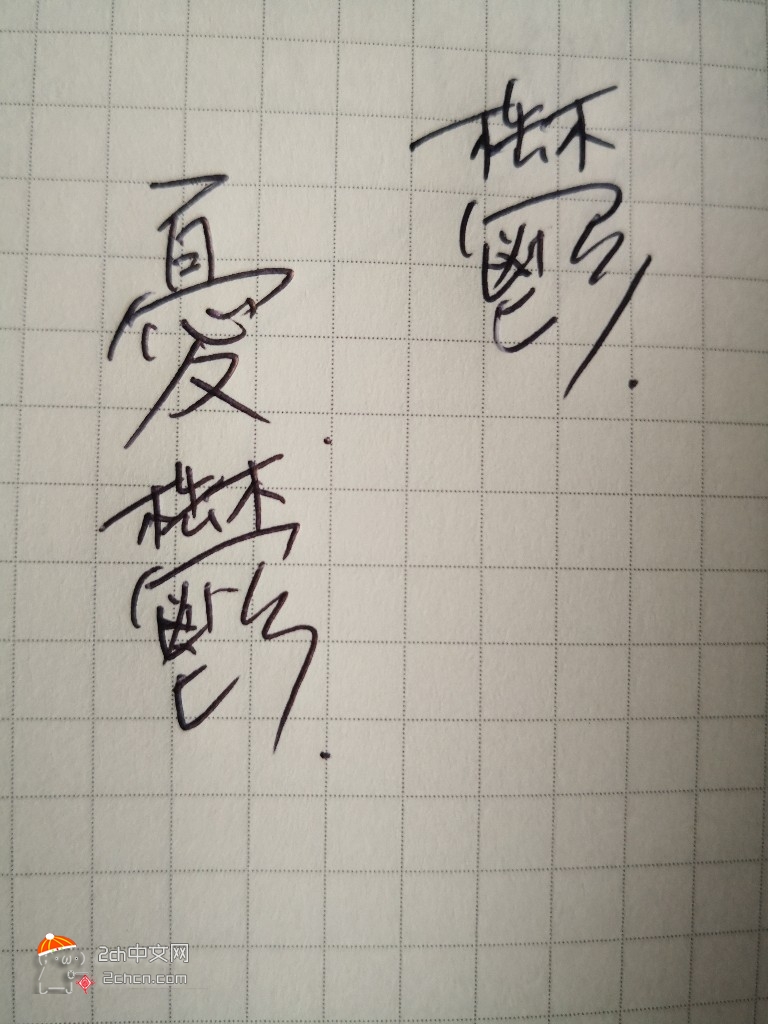 鬱.
憂.
鬱.
2ch中文网
2chcn.com